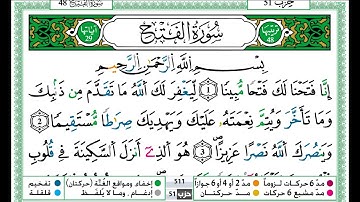 سورة الفتح 48
حزب 51
ترتيبها 48
سُورَةُ الْفَتْحِ
آياتها 29
بِسْمِ اللَّهِ الرَّحْمَٰنِ الرَّحِيمِ
إِنَّا فَتَحْنَا لَكَ فَتْحًا مُّبِينًا 1 لِّيَغْفِرَ لَكَ اللَّهُ مَا تَقَدَّمَ مِن ذَنبِكَ
وَمَا تَأَخَّرَ وَيُتِمَّ نِعْمَتَهُ عَلَيْكَ وَيَهْدِيَكَ صِرَاطًا مُّسْتَقِيمًا 2
وَيَنصُرَكَ اللَّهُ نَصْرًا عَزِيزًا 3 هُوَ الَّذِي أَنزَلَ السَّكِينَةَ فِي قُلُوبِ
مدّ 6 حركات لزوماً مدّ 2 أو 4 أو 6 جوازاً إخفاء ومواقع الغُنَّة (حركتان) تفخيم
مدّ مشبع 6 حركات مدّ حركتان إدغام، وما لا يُلفَظ قلقلة
حزب 51
511